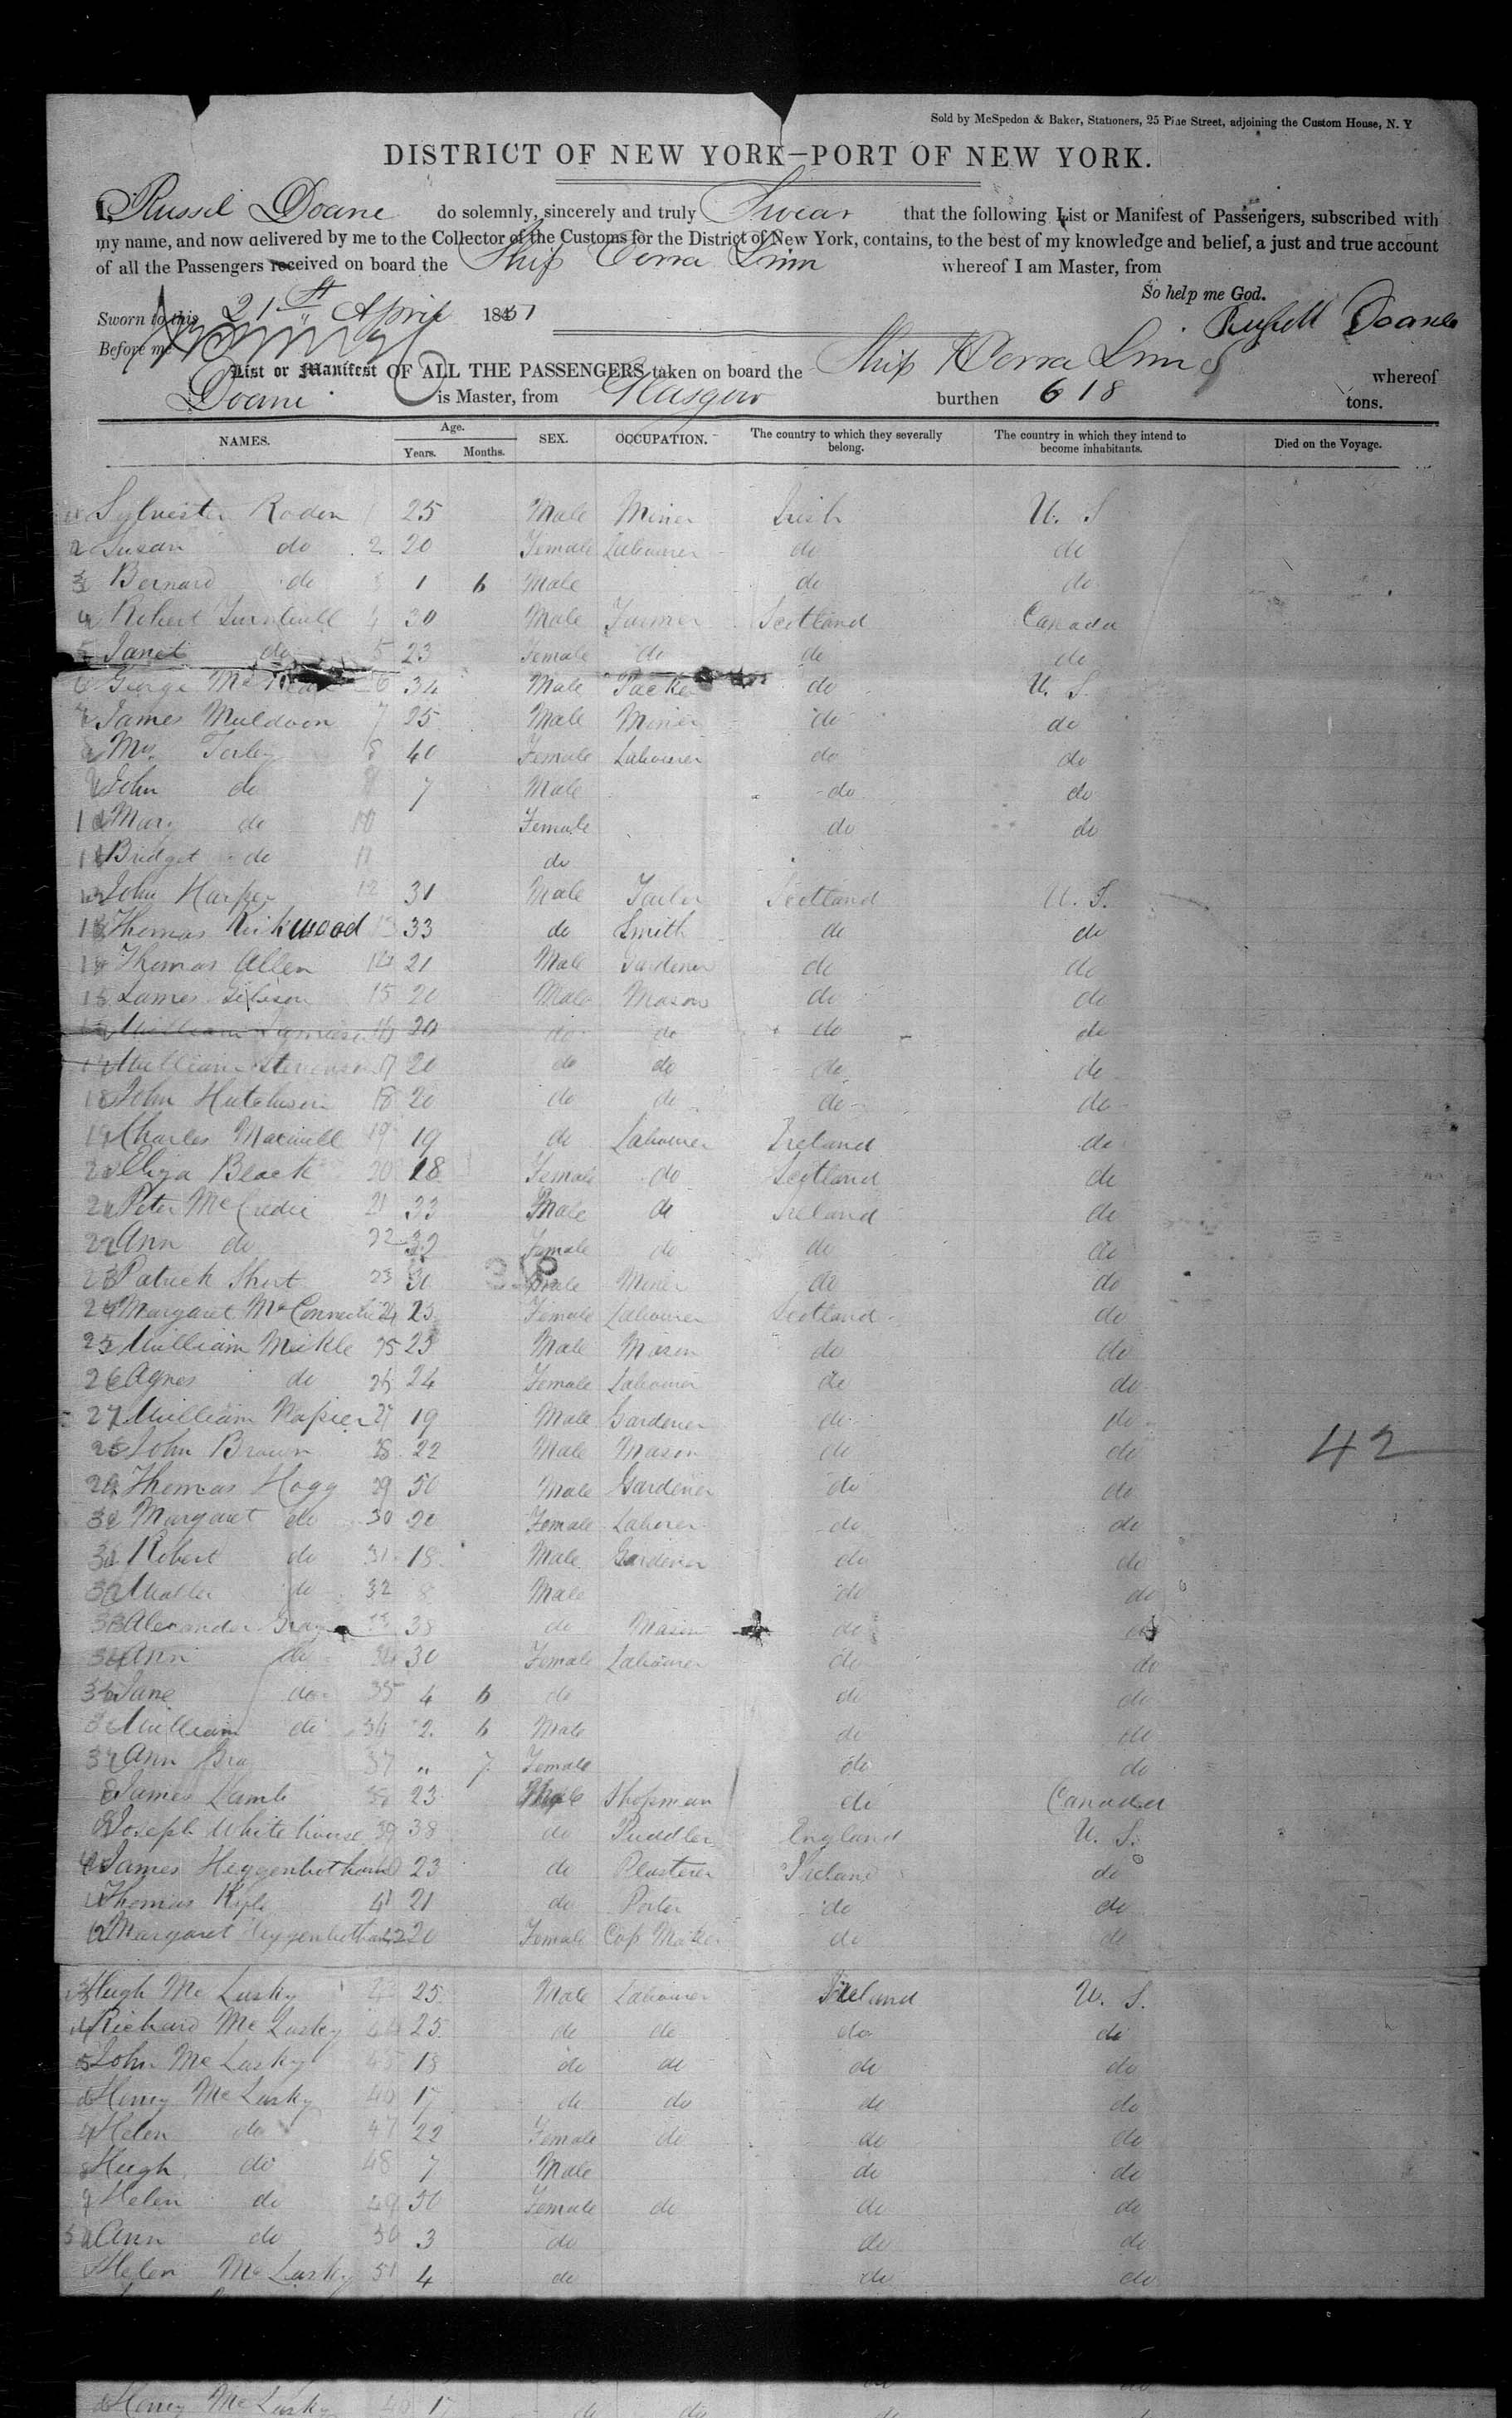 Sold by McSpedon & Baker, Stationers, 25 Pine Street, adjoining the Custom House, N. Y
DISTRICT OF NEW YORK—PORT OF NEW YORK.
I, Russel Doane do solemnly, sincerely and truly Swear that the following List or Manifest of Passengers, subscribed with
my name, and now delivered by me to the Collector of the Customs for the District of New York, contains, to the best of my knowledge and belief, a just and true account
of all the Passengers received on board the Ship Corra Linn whereof I am Master, from
So help me God.
Sworn to this 21st April 1851 Russell Doane
Before me
List or Manifest OF ALL THE PASSENGERS taken on board the Ship Corra Linn whereof
Doane is Master, from Glasgow burthen 618 tons.
NAMES. Age. Years. Months. SEX. OCCUPATION. The country to which they severally belong. The country in which they intend to become inhabitants. Died on the Voyage.
Sylvester Roden 1 25 Male Miner Irish U. S
2 Susan do 2 20 Female Labourer do do
3 Bernard do 1 6 Male do do
4 Robert Turnbull 4 30 Male Farmer Scotland Canada
5 Janet do 5 23 Female do do do
6 George 6 34 Male do U. S.
7 James Muldoon 7 25 Male Miner do do
Mrs Torley 8 40 Female Labourer do do
John do 7 Male do do
10 Mary do 10 Female do do
11 Bridget do 11 do
12 John Harper 12 31 Male Tailor Scotland U. S.
13 Thomas Kirkwood 13 33 do Smith do do
14 Thomas Allen 14 21 Male Gardener do do
15 James Gibson 15 20 Male Mason do do
William Jamieson 16 20 do do do do
17 William Stevenson 17 20 do do do do
18 John Hutchison 18 20 do do do do
19 Charles Maxwell 19 19 do Labourer Ireland do
20 Eliza Black 20 18 Female do Scotland do
21 Peter McCredie 21 33 Male do Ireland do
22 Ann do 22 32 Female do do do
23 Patrick Short 23 30 Male Miner do do
24 Margaret 24 23 Female Labourer Scotland do
25 William Meikle 25 23 Male Mason do do
26 Agnes do 26 24 Female Labourer do do
27 William Napier 27 19 Male Gardener do do
28 John Brown 28 22 Male Mason do do
42
29 Thomas Hogg 29 50 Male Gardener do do
30 Margaret do 30 20 Female Laborer do do
31 Robert do 31 18 Male Gardener do do
32 Walter do 32 8 Male do do
33 Alexander Gray 33 38 do Mason do do
34 Ann do 34 30 Female Labourer do do
35 Jane do 35 4 6 do do do
36 William do 36 2 6 Male do do
37 Ann Gray 37 " 7 Female do do
8 James Lamb 38 23 Male Shopman do Canada
9 Joseph Whitehouse 39 38 do Puddler England U. S.
40 James Heggenbotham 40 23 do Plasterer Ireland do
1 Thomas Kyle 41 21 do Porter do do
2 Margaret Heggenbotham 42 20 Female Cap Maker do do
3 Hugh Mc Lusky 43 25 Male Labourer Ireland U. S.
4 Richard Mc Lusky 44 25 do do do do
5 John Mc Lusky 45 18 do do do do
6 Henry Mc Lusky 46 17 do do do do
7 Helen do 47 22 Female do do do
8 Hugh do 48 7 Male do do
9 Helen do 49 50 Female do do do
50 Ann do 50 3 do do do
Helen Mc Lusky 51 4 do do do
Henry Mc Lusky 46 17 do do do